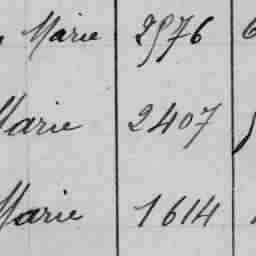 Marie 2576
Marie 2407
Marie 1614